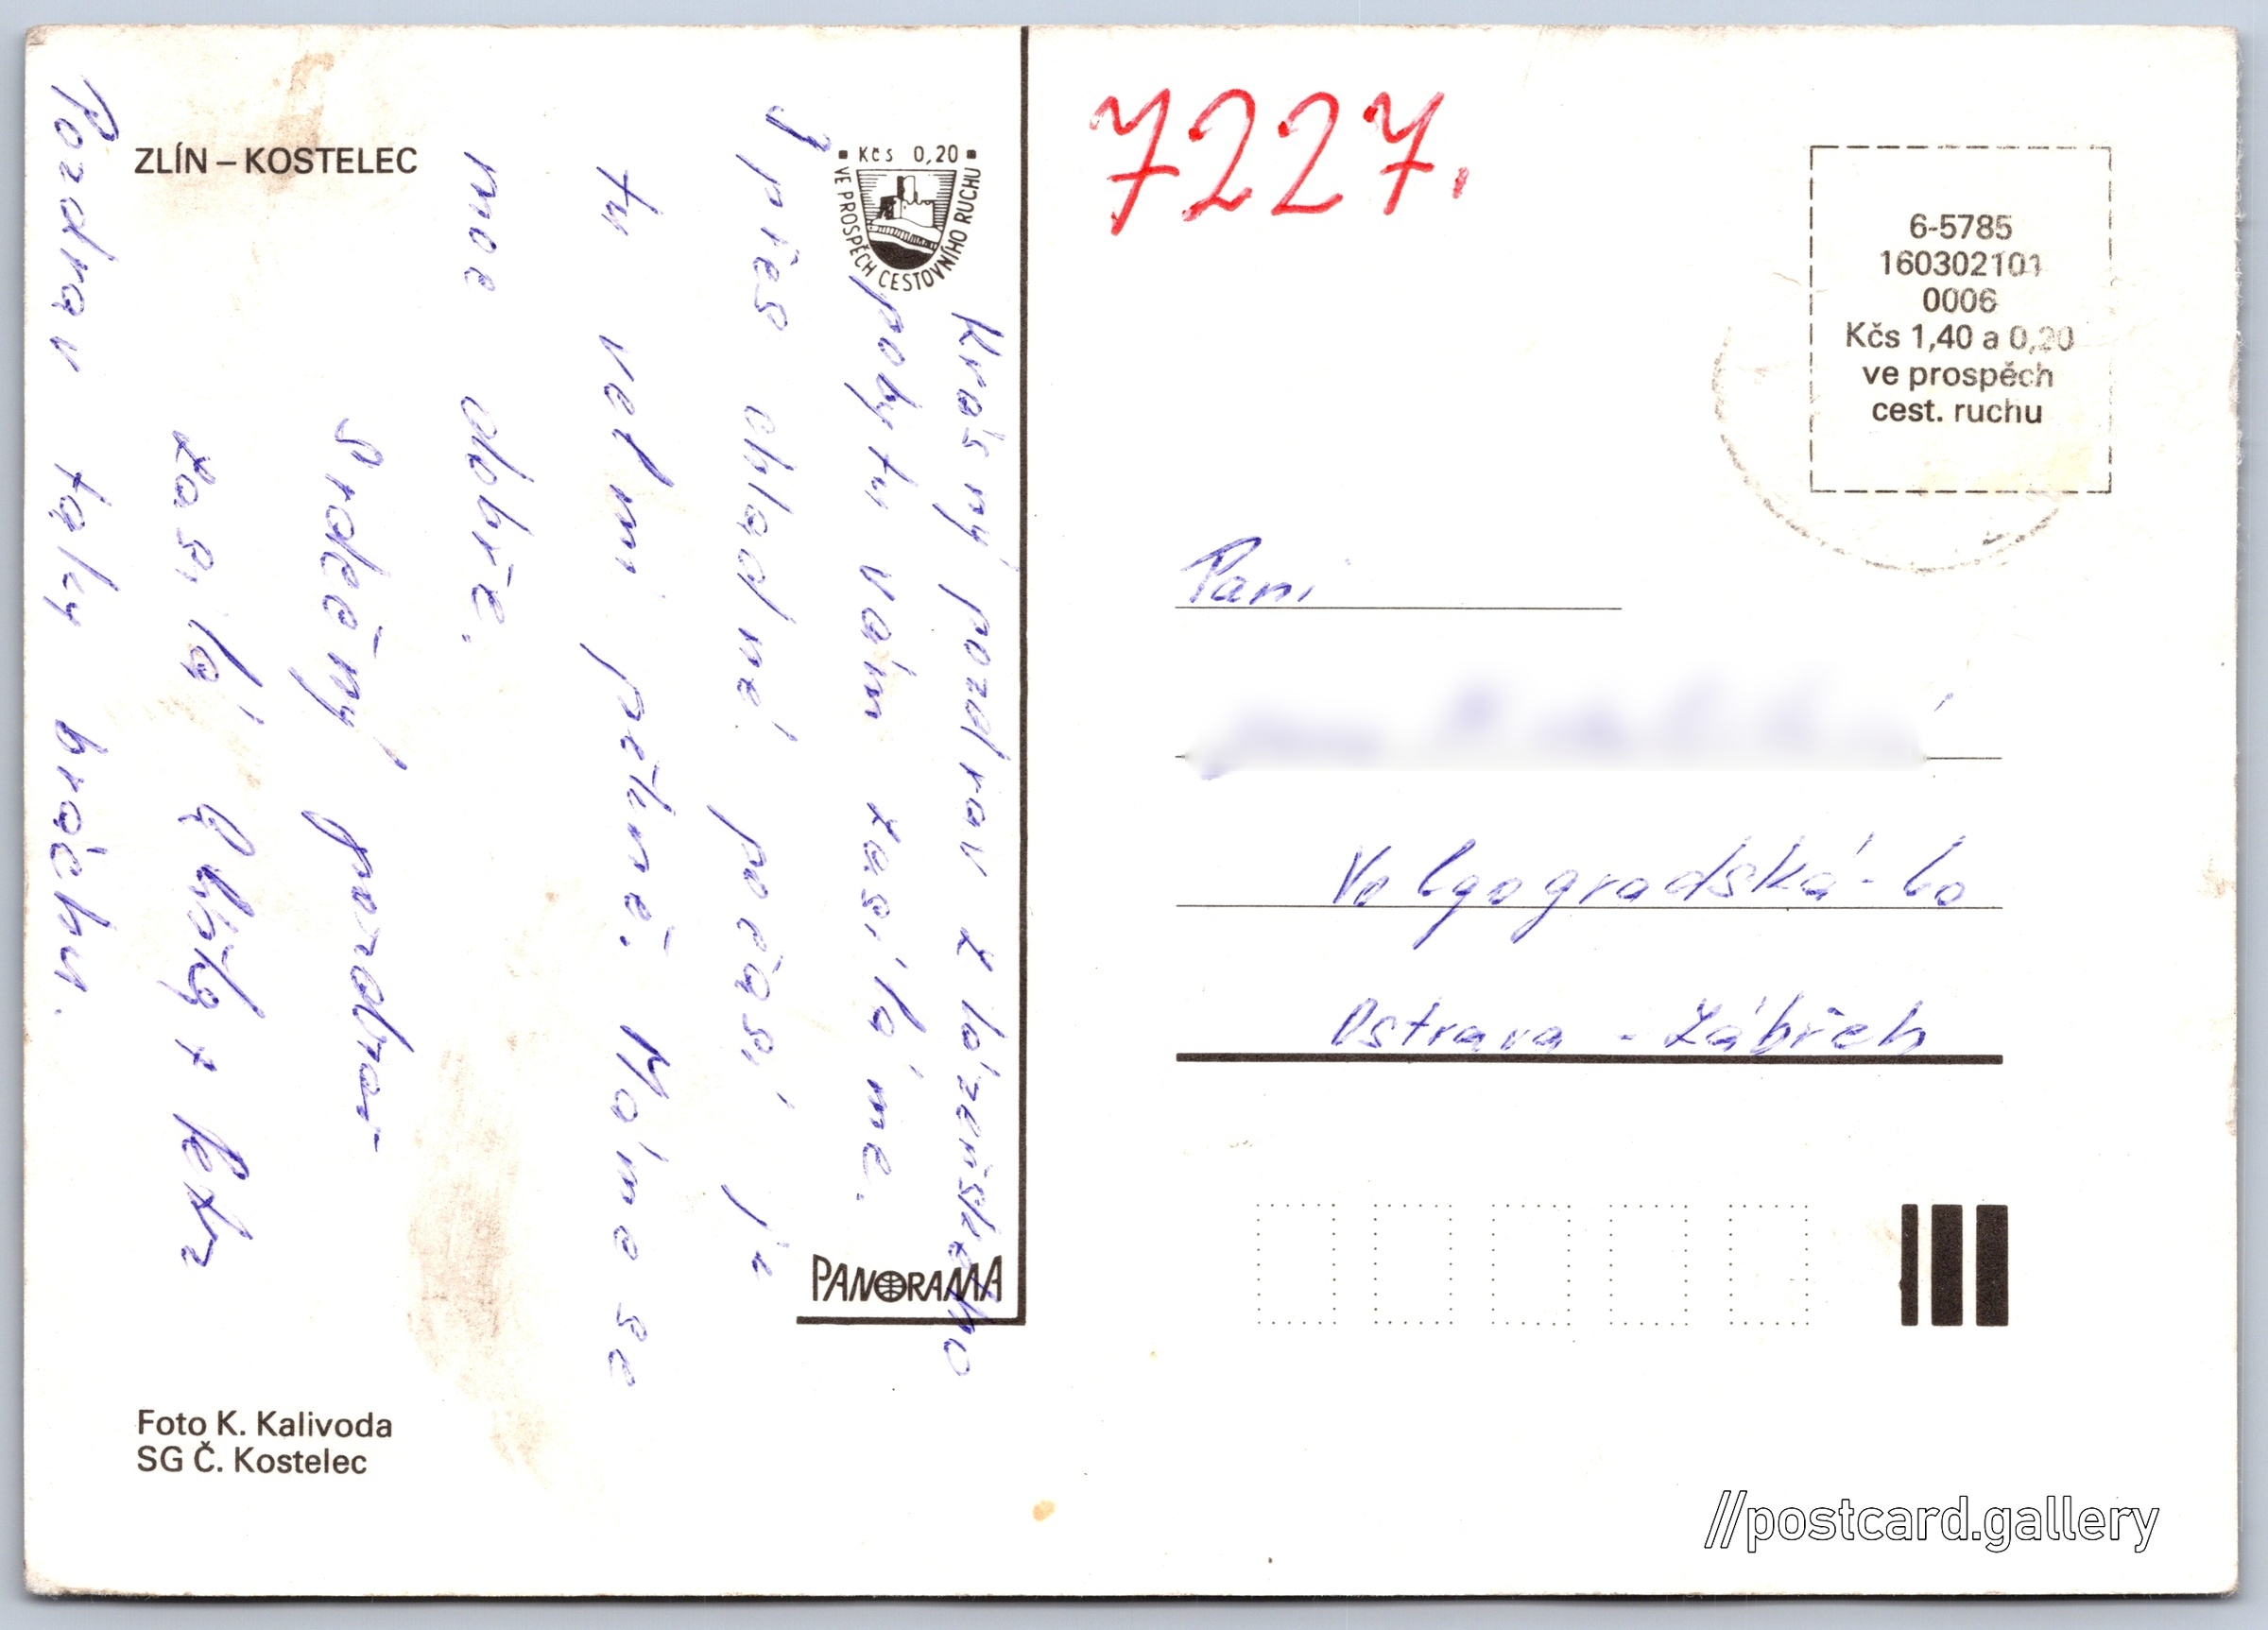 ZLÍN – KOSTELEC
Kčs 0,20
VE PROSPĚCH CESTOVNÍHO RUCHU
Krásný pozdrav z lázeňského
pobytu vám zasíláme.
I přes chladné počasí je
tu velmi pěkně. Máme se
moc dobře.
Srdečný pozdrav
zasílá + Petr
Pozdrav taky bráchu.
PANORAMA
Foto K. Kalivoda
SG Č. Kostelec
7227.
6-5785
160302101
0006
Kčs 1,40 a 0,20
ve prospěch
cest. ruchu
Paní
Volgogradská - 60
Ostrava - Zábřeh
//postcard.gallery